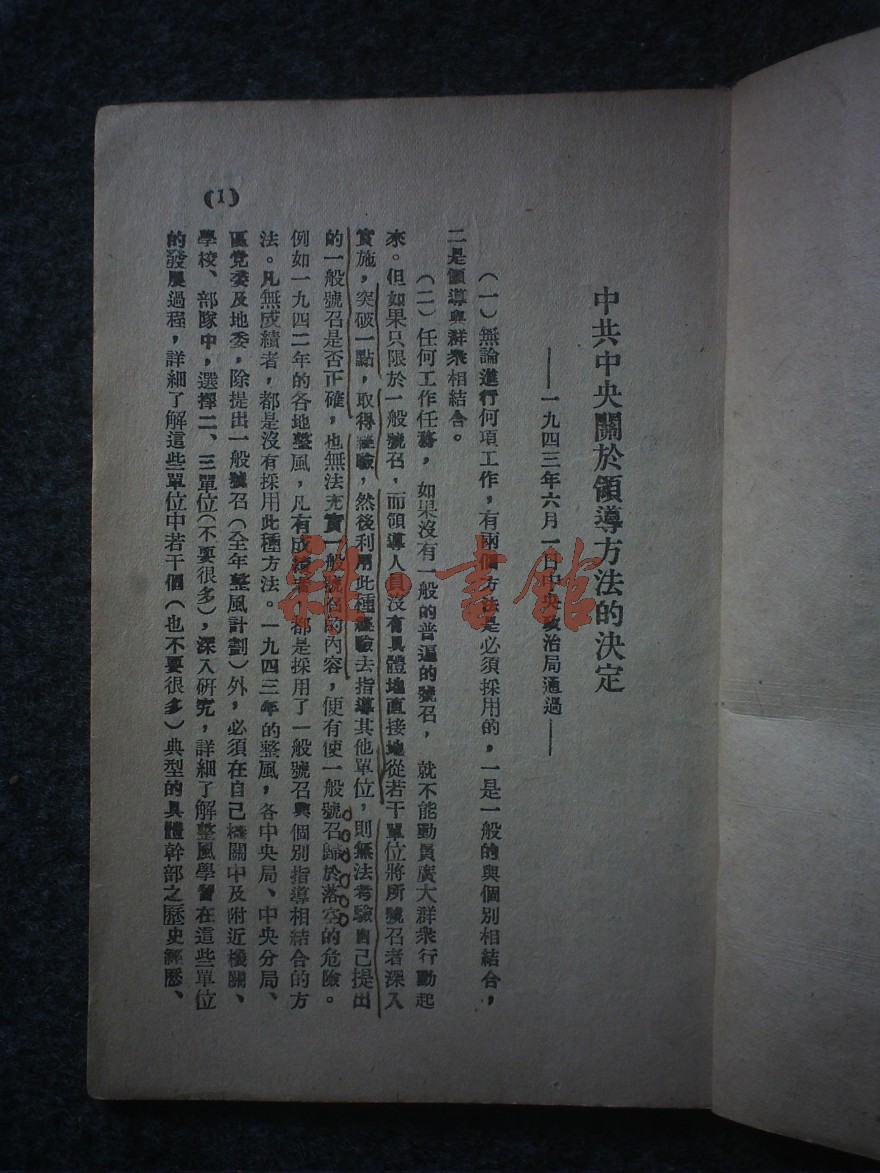 中共中央關於領導方法的決定
——一九四三年六月一日中央政治局通過——
（一）無論進行何項工作，有兩個方法是必須採用的，一是一般的與個別相結合，
二是領導與群衆相結合。
（二）任何工作任務，如果沒有一般的普遍的號召，就不能動員廣大群衆行動起
來。但如果只限於一般號召，而領導人員沒有具體地直接地從若干單位將所號召者深入
實施，突破一點，取得經驗，然後利用此種經驗去指導其他單位，則無法考驗自己提出
的一般號召是否正確，也無法充實一般號召的內容，便有使一般號召歸於落空的危險。
例如一九四二年的各地整風，凡有成績者，都是採用了一般號召與個別指導相結合的方
法。凡無成績者，都是沒有採用此種方法。一九四三年的整風，各中央局、中央分局、
區党委及地委，除提出一般號召（全年整風計劃）外，必須在自己機關中及附近機關、
學校、部隊中，選擇二、三單位（不要很多），深入研究，詳細了解整風學習在這些單位
的發展過程，詳細了解這些單位中若干個（也不要很多）典型的具體幹部之歷史經歷、
(1)
雜·書館